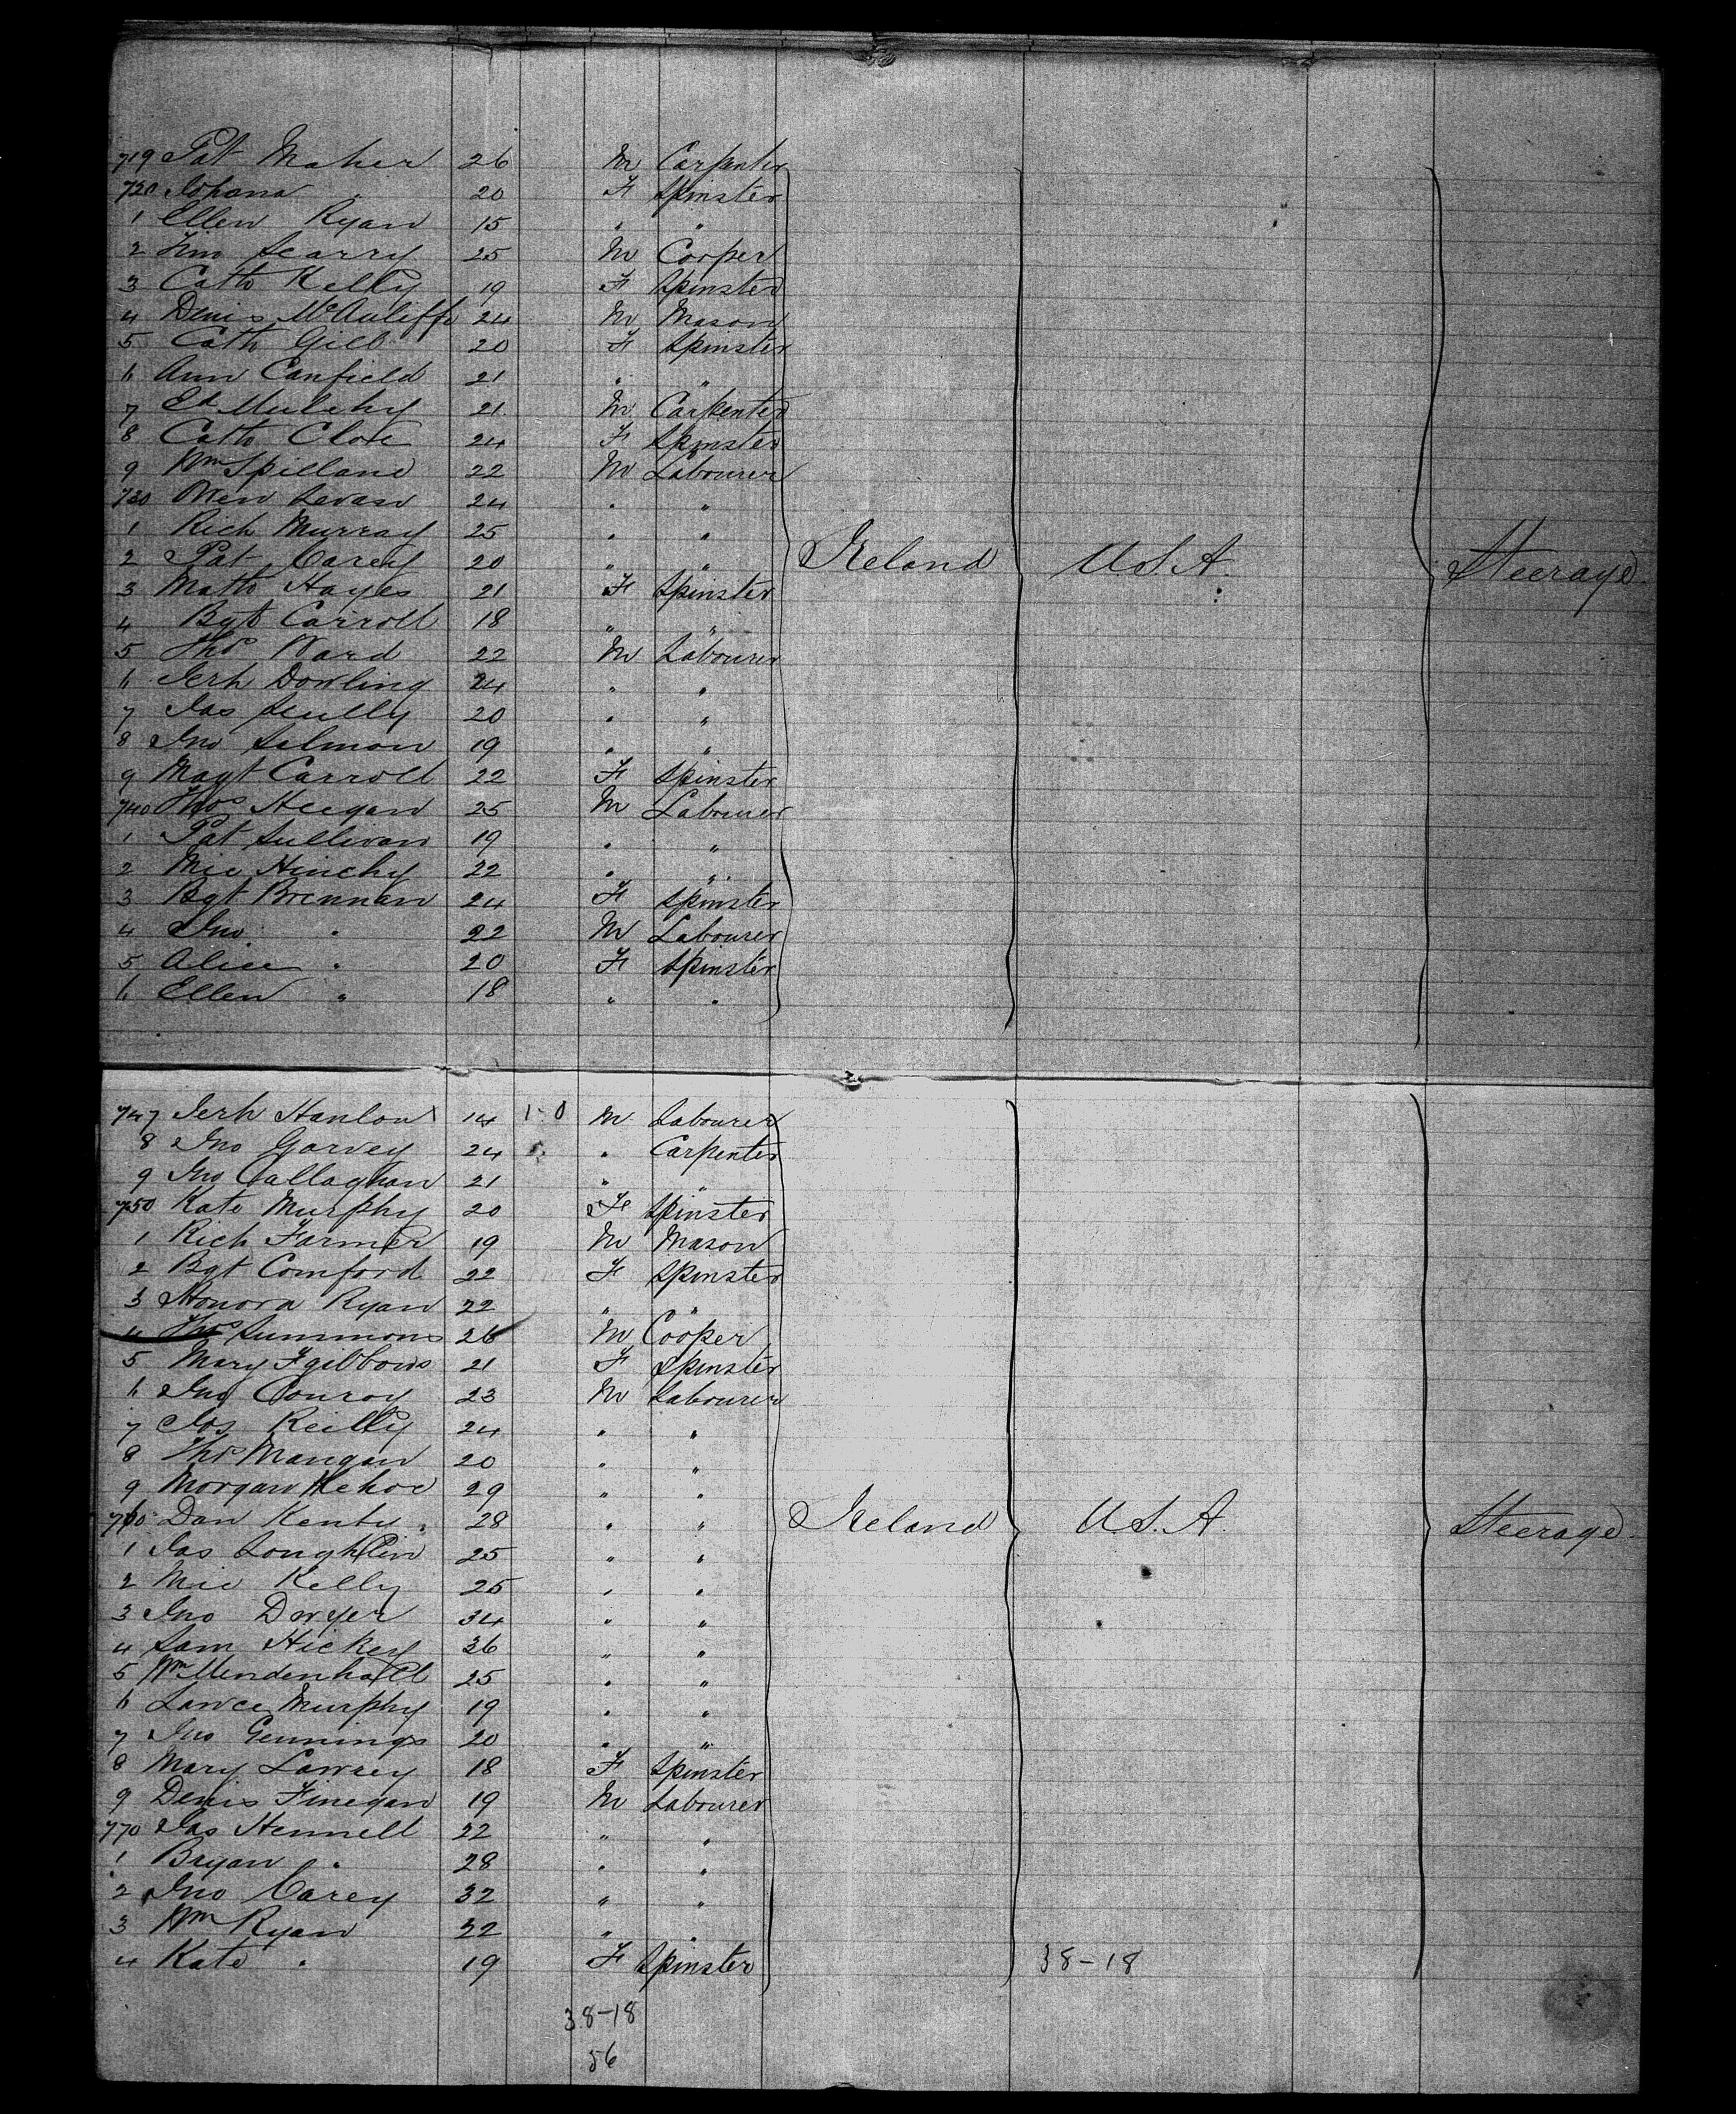 719 Pat Maher 26 M Carpenter
720 Johana " 20 F Spinster
1 Ellen Ryan 15 " "
2 Tim Scarry 25 M Cooper
3 Cath Kelly 19 F Spinster
4 Denis McAuliffe 24 M Mason
5 Cath Gill 20 F Spinster
6 Ann Canfield 21 " "
7 Ed Mulchy 21 M Carpenter
8 Cath Clote 24 F Spinster
9 Wm Spillane 22 M Labourer
730 Owen 24 " "
1 Rich Murray 25 " "
2 Pat Carey 20 " " Ireland U.S.A. Steerage
3 Matto Hayes 21 F Spinster
4 Bgt Carroll 18 " "
5 Thos Ward 22 M Labourer
6 Jerh Dowling 24 " "
7 Jas Scully 20 " "
8 Jno Salmon 19 " "
9 Magt Carroll 22 F Spinster
740 Thos Heegan 25 M Labourer
1 Pat Sullivan 19 " "
2 Mic Hinchy 22 " "
3 Bgt Brennan 24 F Spinster
4 Jno " 22 M Labourer
5 Alice " 20 F Spinster
6 Ellen " 18 " "
747 Jerh Hanlon 14 1-0 M Labourer
8 Jno Garvey 24 " Carpenter
9 Jno Callaghan 21 " "
750 Kate Murphy 20 F Spinster
1 Rich Farmer 19 M Mason
2 Bgt Comford 22 F Spinster
3 Honora Ryan 22 " "
4 Thos Summons 26 M Cooper
5 Mary Fgibbons 21 F Spinster
6 Jno Conroy 23 M Labourer
7 Jos Reilly 24 " "
8 Thos Mangan 20 " "
9 Morgan Kehoe 29 " "
760 Dan Kenty 28 " " Ireland U.S.A. Steerage
1 Jas Loughlin 25 " "
2 Mic Kelly 25 " "
3 Jno Dwyer 34 " "
4 Sam Hickey 36 " "
5 Wm Mendenhall 25 " "
6 Lawce Murphy 19 " "
7 Jno Gennings 20 " "
8 Mary Lawrey 18 F Spinster
9 Denis Finegan 19 M Labourer
770 Jas Hennell 22 " "
1 Bryan " 28 " "
2 Jno Carey 32 " "
3 Wm Ryan 22 " "
4 Kate " 19 F Spinster 38-18
38-18
56